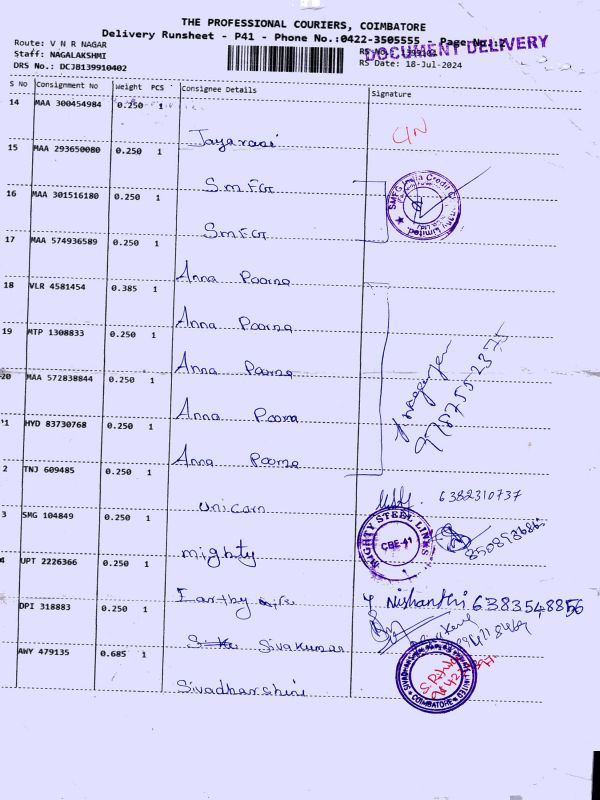 THE PROFESSIONAL COURIERS, COIMBATORE
Delivery Runsheet - P41 - Phone No.:0422-3505555 - Page No.:2
DOCUMENT DELIVERY
Route: V N R NAGAR
Staff: NAGALAKSHMI
RS Date: 18-Jul-2024
DRS No.: DCJB139910402
S No Consignment No Weight PCS Consignee Details Signature
14 MAA 300454984 0.250 1
15 MAA 293650080 0.250 1 SMFG
16 MAA 301516180 0.250 1 SMFG
17 MAA 574936589 0.250 1 Anna Poorna
18 VLR 4581454 0.385 1 Anna Poorna
19 MTP 1308833 0.250 1 Anna Poorna
20 MAA 572838844 0.250 1 Anna Poorna
1 HYD 83730768 0.250 1 Anna Poorna
2 TNJ 609485 0.250 1 Unicorn 6382310737
3 SMG 104849 0.250 1 mighty
MIGHTY STEEL LINKS
CBE-41
4 UPT 2226366 0.250 1 Nishanthi 6383548856
DPI 318883 0.250 1 Sivakumar
AWY 479135 0.685 1 Sivadharshini
COIMBATORE